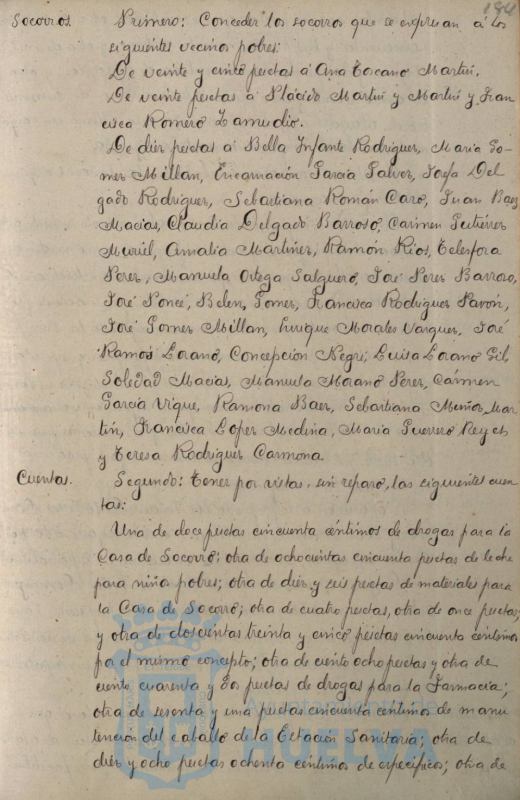 184
Socorros. Primero: Conceder los socorros que se expresan á los
siguientes vecinos pobres:
De veinte y cinco pesetas á Ana Toscano Martin.
De veinte pesetas á Plácido Martin y Martin y Fran
cisca Romero Zamudio.
De diez pesetas á Bella Infante Rodriguez, Maria Go-
mez Millan, Encarnación Garcia Galvez, Josefa Del
gado Rodriguez, Sebastiana Román Caro, Juan Baez
Macias, Claudia Delgado Barroso, Carmen Gutiérrez
Muriel, Amalia Martinez, Ramón Rios, Telesfora
Perez, Manuela Ortega Salguero, José Perez Barroso,
José Ponce, Belen Gomez, Francisca Rodriguez Pavón,
José Gomez Millan, Enrique Morales Vazquez, José
Ramos Lozano, Concepción Negri, Luisa Lozano Gil,
Soledad Macias, Manuela Morano Perez, Cármen
Garcia Vigue, Ramona Baez, Sebastiana Muñoz Mar
tin, Francisca Lopez Medina, Maria Guerrero Reyes
y Teresa Rodriguez Carmona.
Cuentas. Segundo: Tener por vistas, sin reparo, las siguientes cuen
tas:
Una de doce pesetas cincuenta céntimos de drogas para la
Casa de Socorro; otra de ochocientas cincuenta pesetas de leche
para niños pobres; otra de diez y seis pesetas de materiales para
la Casa de Socorro; otra de cuatro pesetas, otra de once pesetas,
y otra de doscientas treinta y cinco pesetas cincuenta céntimos
por el mismo concepto; otra de ciento ocho pesetas y otra de
ciento cuarenta y dos pesetas de drogas para la Farmacia;
otra de sesenta y una pesetas cincuenta céntimos de manu
tención del caballo de la Estación Sanitaria; otra de
diez y ocho pesetas ochenta céntimos de especificos; otra de
Ayuntamiento de
HUELVA